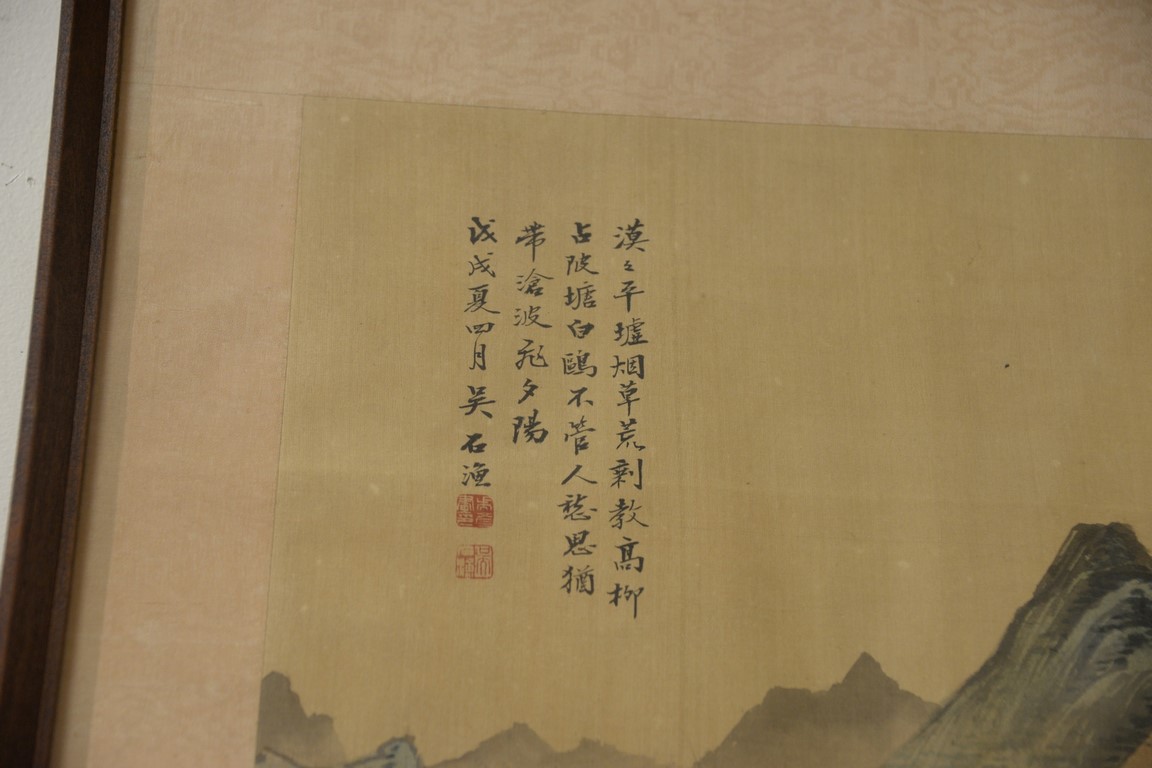 漠〻平墟烟草荒剩教高柳
占陂塘白鷗不管人愁思猶
帶滄波飛夕陽
戊戌夏四月吴石漁